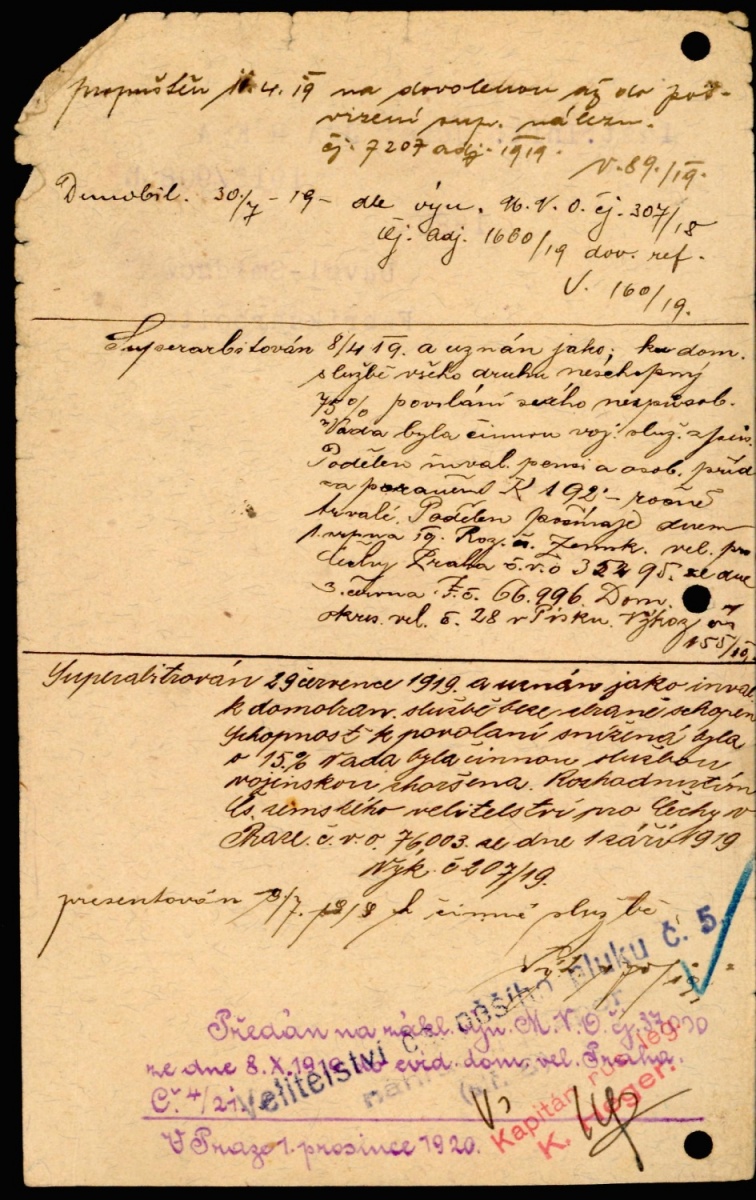 propuštěn 11.4.19 na dovolenou až do pot-
vrzení sup. nálezu.
čj. 7207 adj. 1919.
V. 89./19.
Demobil. 30./7 - 19 - dle výn. M.V.O. čj. 307/18
čj. adj. 1660/19 dov. ref.
V. 160/19.
Superarbitován 8/4 19. a uznán jako; ku dom.
službě všeho druhu neschopný
75% povolání svého nezpůsob.
Vada byla činnou voj. služ. způs.
Podělen inval. pensí a osob. příd
za poranění K 192·- ročně
trvale. Podělen počínaje dnem
1. srpna 19. Roz. č. Zemsk. vel. pro
Čechy Praha č.v.o 35495. ze dne
3. června F.č. 66.996. Dom.
okres. vel. č. 28 v Písku. Výkaz
155/19.
Superabitrován 29 července 1919. a uznán jako inval.
k domobran. službě beze zbraně schopen
schopnost k povolaní snížená byla
o 15.% Vada byla činnou službou
vojínskou zhoršena. Rozhodnutím
Čs. zemského velitelství pro Čechy v
Praze. č. v. o. 76,003. ze dne 1 září 1919
Výk. č 207/19.
presentován /7. k činné službě
Velitelství čs. pěšího pluku č. 5.
Předán na zákl. výn. M.V.O. čj. 37.000
ze dne 8.X.1919 do evid. dom. vel. Praha.
Č. 4/21.
Kapitán rus. leg.
K. Heger.
V Praze 1. prosince 1920.